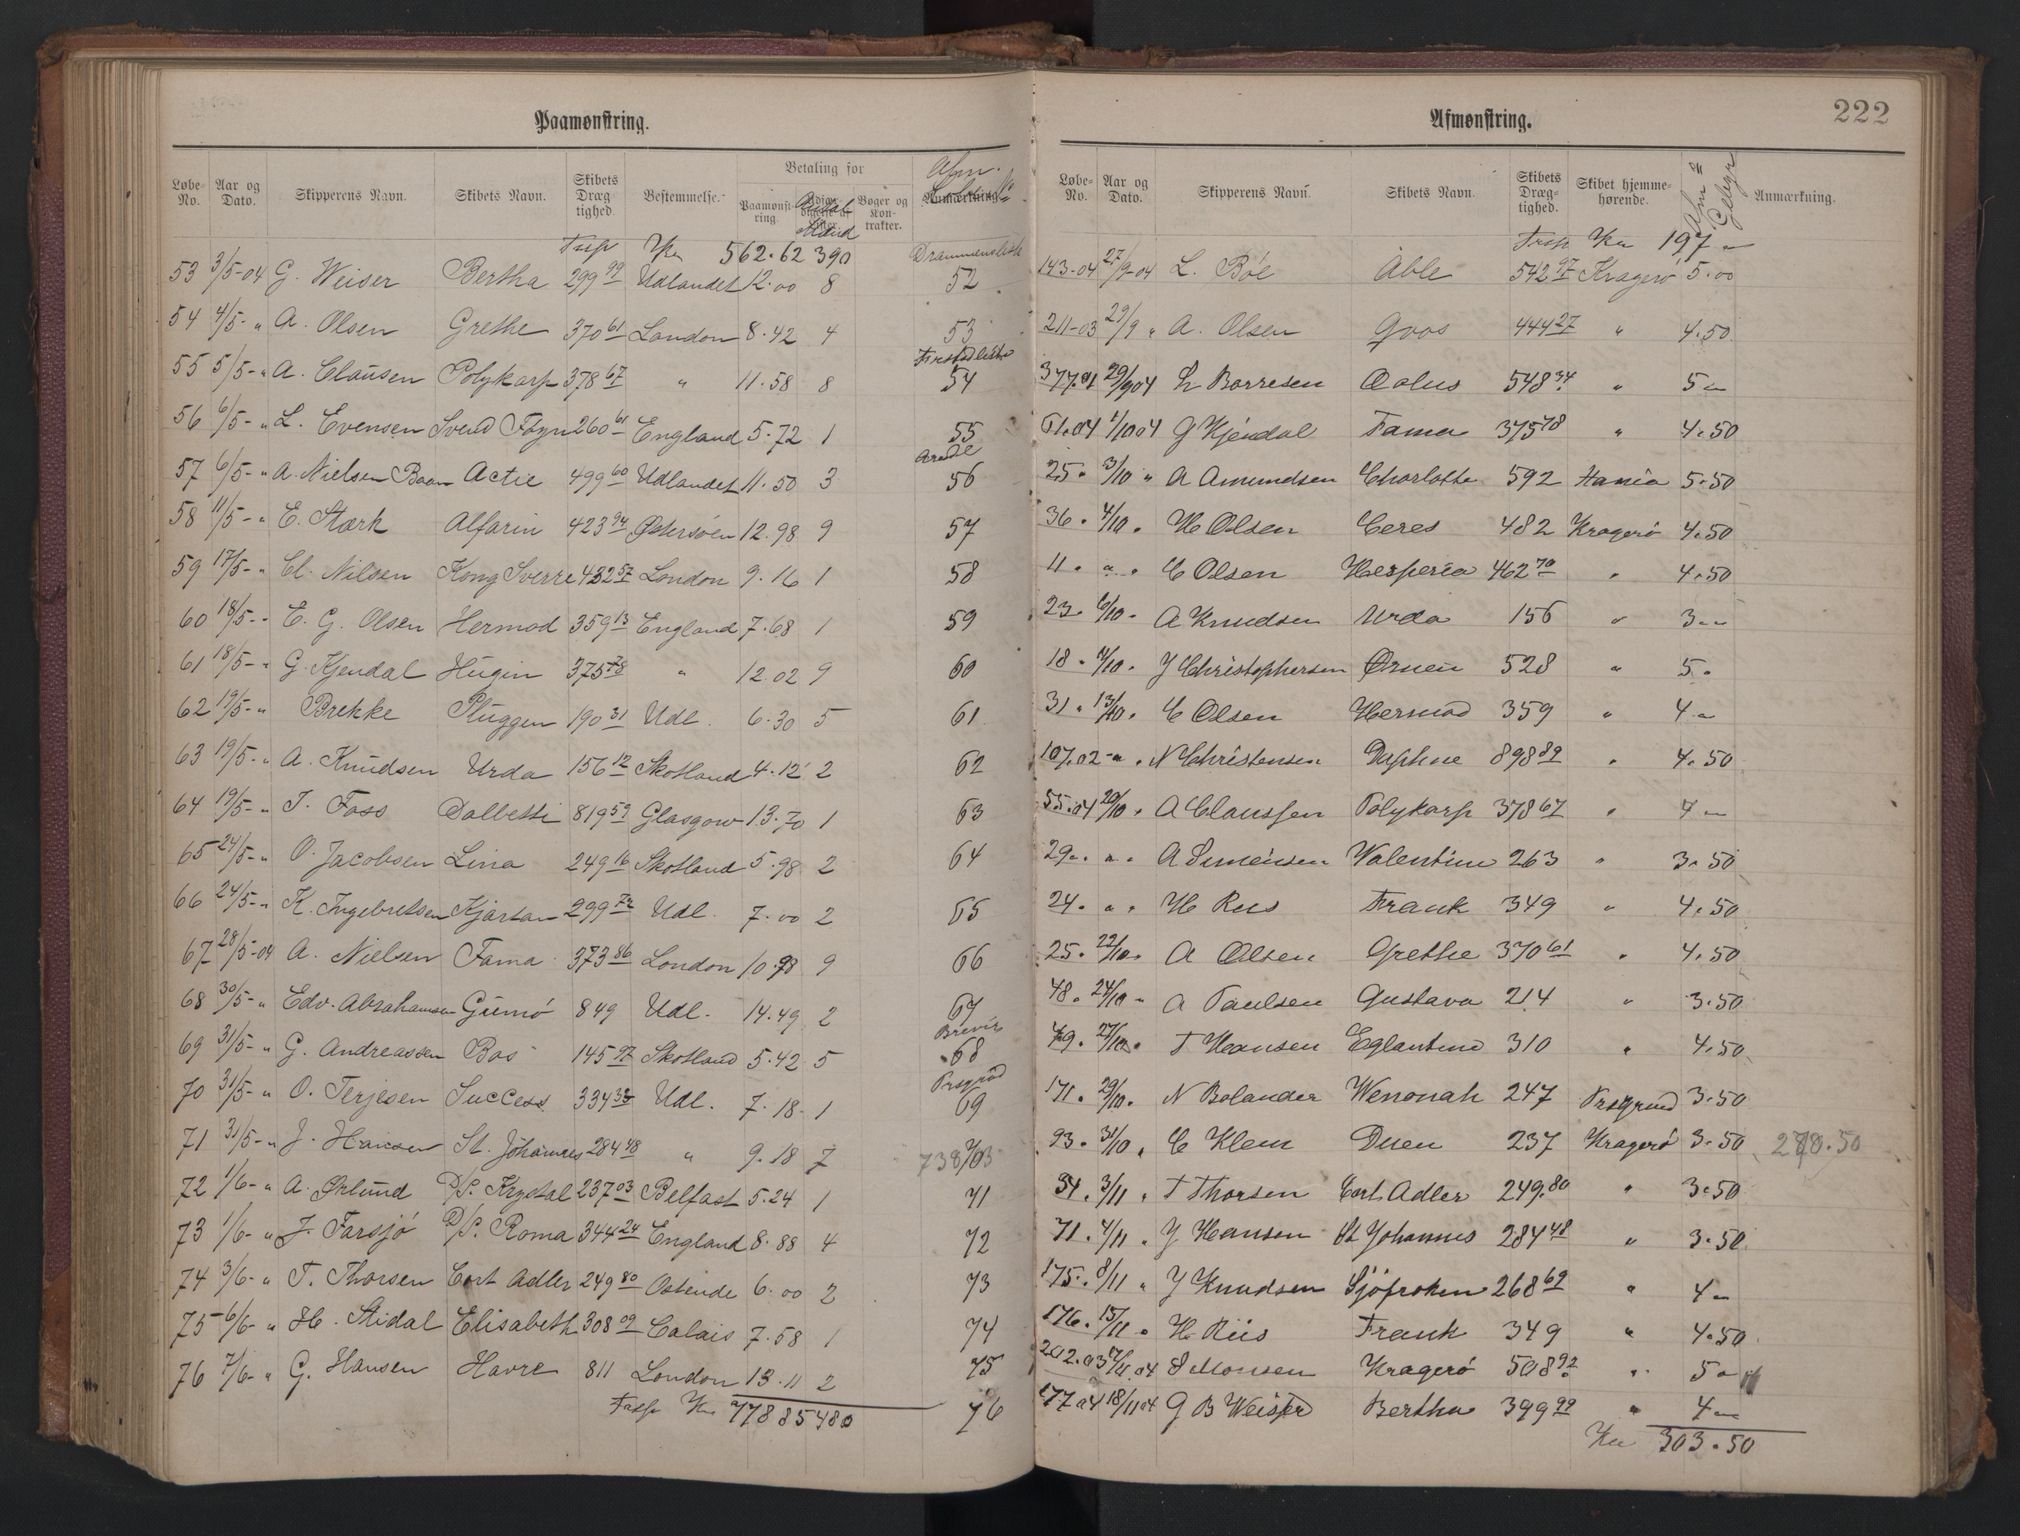 Paamønstring.
Løbe-No. Aar og Dato. Skipperens Navn. Skibets Navn. Skibets Dræg-tighed. Bestemmelse. Betaling for Paamønst-ring. Bøger og Kon-trakter. Anmærkning.
Trsp Kr 562.62 390
53 3/5-04 G. Weiser Bertha 299 99 Udlandet 12.00 8 52
54 4/5- " A. Olsen Grethe 370 61 London 8.42 4 53
55 5/5- " A. Clausen Polykarp 378 67 " 11.58 8 54
56 6/5- " L. Evensen Svend Føyn 260 61 England 5.72 1 55
57 6/5- " A. Nielsen Baan Actie 499 60 Udlandet 11.50 3 56
58 11/5- " E. Stærk Alfarin 423 94 Østersøen 12.98 9 57
59 17/5- " Cl. Nilsen Kong Sverre 432 57 London 9.16 1 58
60 18/5- " E. G. Olsen Hermod 359 13 England 7.68 1 59
61 18/5- " G. Kjendal Hugin 375 78 " 12.02 9 60
62 19/5- " Brekke Pluggen 190 31 Udl. 6.30 5 61
63 19/5- " A. Knudsen Urda 156 12 Skotland 4.12 2 62
64 19/5- " T. Foss Dalbetti 819 59 Glasgow 13.70 1 63
65 24/5- " O. Jacobsen Lina 249 16 Skotland 5.98 2 64
66 24/5- " K. Ingebretsen Kjartan 299 72 Udl. 7.00 2 65
67 28/5-04 A. Nielsen Fama 373 86 London 10.98 9 66
68 30/5- " Edv. Abrahamsen Gumø 849 Udl. 14.49 2 67
69 31/5- " G. Andreassen Bos 145 97 Skotland 5.42 5 Brevik 68
70 31/5- " O. Terjesen Success 334 Udl. 7.18 1 Prsgrd 69
71 31/5- " J. Hansen St. Johannes 284 48 " 9.18 7 738/03
72 1/6- " A. Ørlund D/S. Krystal 237 03 Belfast 5.24 1 71
73 1/6- " J. Farsjø D/S. Roma 344 24 England 8.88 4 72
74 3/6- " T. Thorsen Cort Adler 249 80 Ostende 6.00 2 73
75 6/6- " H. Stidal Elisabeth 308 09 Calais 7.58 1 74
76 7/6- " G. Hansen Havre 811 London 13.11 2 75
Trsp Kr 778 85 480 76
Afmønstring. 222
Løbe-No. Aar og Dato. Skipperens Navn. Skibets Navn. Skibets Dræg-tighed. Skibet hjemme-hørende. Gebyr Anmærkning.
Trsp Kr 197 "
143-04 27/9-04 L. Böe Able 542 97 Kragerö 5.00
211-03 29/9 " A. Olsen Gvos 444 27 " 4.50
377.01 29/9 04 L Borresen Æolus 548 34 " 5 "
61.04 1/10 04 G Kjendal Fama 375 78 " 4.50
25 " 3/10 " A Amundsen Charlotte 592 Hania 5.50
36 " 4/10 " H Olsen Ceres 482 Kragerö 4.50
11 " " " C Olsen Hesperia 462 70 " 4.50
23 " 6/10 " A Knudsen Urda 156 " 3 "
18 " 11/10 " J Christophersen Ørnen 528 " 5 "
31 " 13/10 " C Olsen Hermod 359 " 4 "
107.02 " " N Christensen Daphne 898 89 " 4.50
55.04 20/10 " A Claussen Polykarp 378 67 " 4 "
29 " " " A Simensen Valentine 263 " 3.50
24 " " " H Riis Frank 349 " 4.50
25 " 22/10 " A Olsen Grethe 370 61 " 4.50
48 " 24/10 " A Paulsen Gustava 214 " 3.50
49 " 27/10 " T Hansen Eglantine 310 " 4.50
171 " 29/10 " N Bolander Wenonah 247 Prsgrund 3.50
93 " 31/10 " C Klem Duen 237 Kragerö 3.50 270.50
34 " 3/11 " T Thorsen Cort Adler 249.80 " 3.50
71 " 4/11 " J Hansen St Johannes 284 48 " 3.50
175 " 8/11 " J Knudsen Sjöfroken 268 69 " 4 "
176 " 15/11 " H Riis Frank 349 " 4.50
202.03 17/11.04 S Monsen Kragerö 508 92 " 5 "
177 04 18/11 04 G B Weiser Bertha 399 99 " 4 "
Kr 303.50